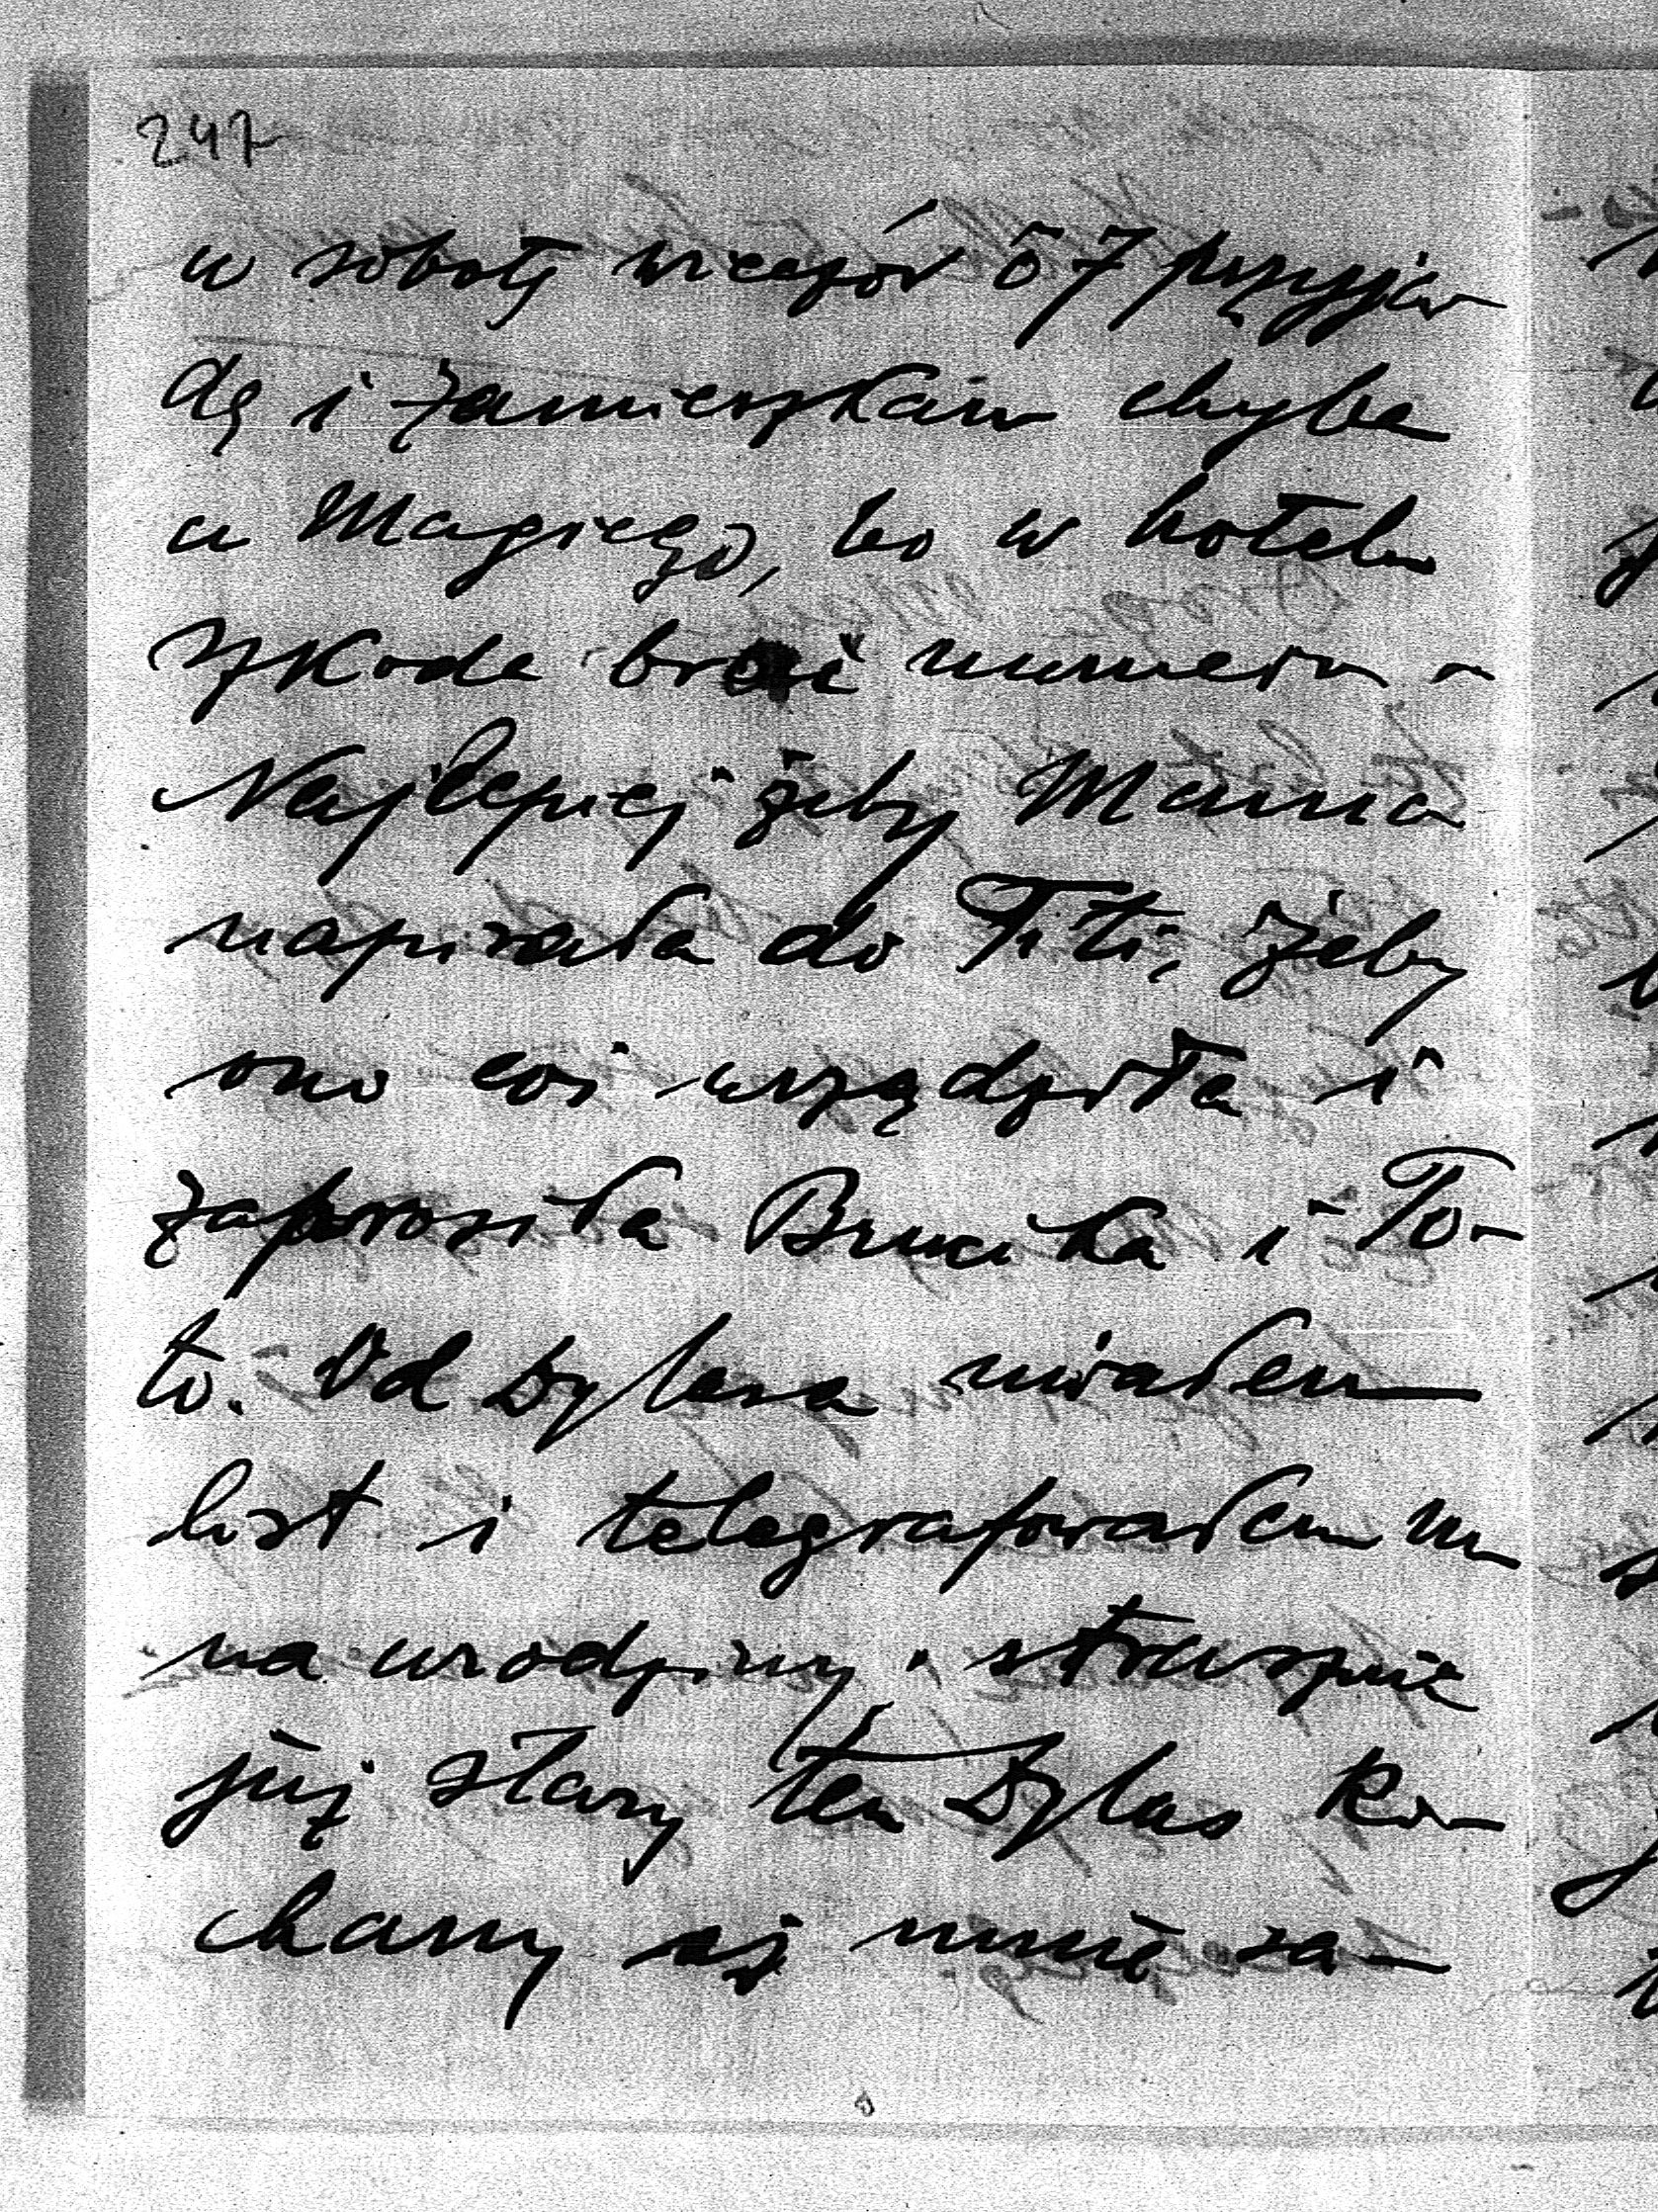 247
w sobotę wieczór o 7 przyja-
dę i zamieszkam chyba
u Magiego, bo w hotelu
szkoda brać numeru -
Najlepiej żeby Mama
napisała do Titi, żeby
ono coś urządziła i
zaprosiła Brucika i To-
to. Od Dylasa miałem
list i telegrafowałem mu
na urodziny. strasznie
już stary ten Dylas ko-
chany aż mnie za-